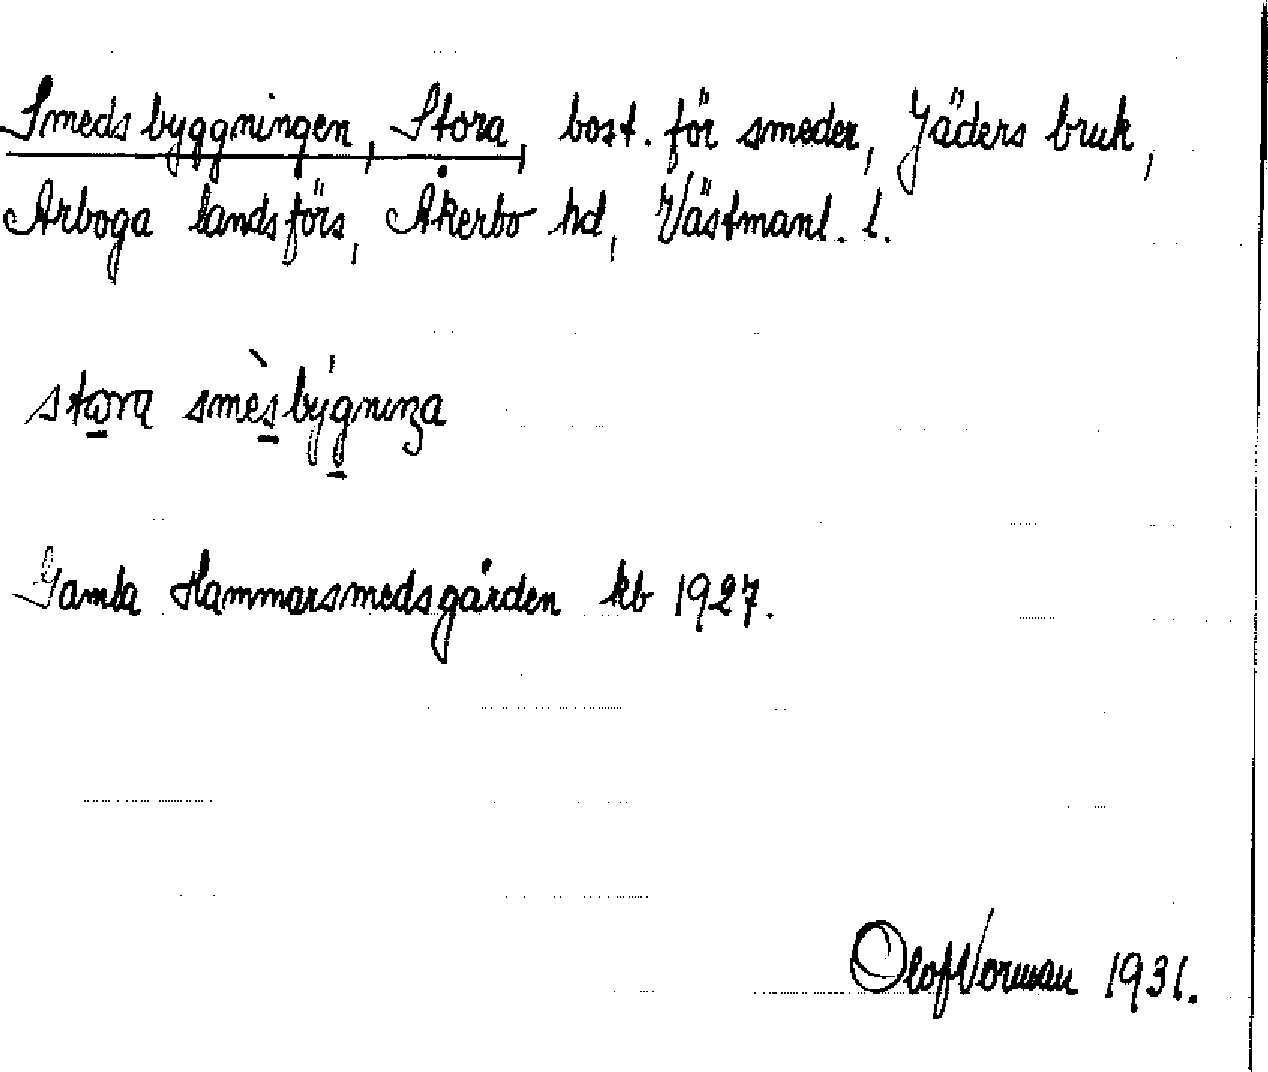 Smedsbyggningen, Stora, bost. för smeder, Jäders bruk,
Arboga landsförs, Åkerbo hd, Västmanl. l.
stora smèsby̍gnıŋa
Gamla Hammarsmedsgården kb 1927.
Olof Vorman 1931.